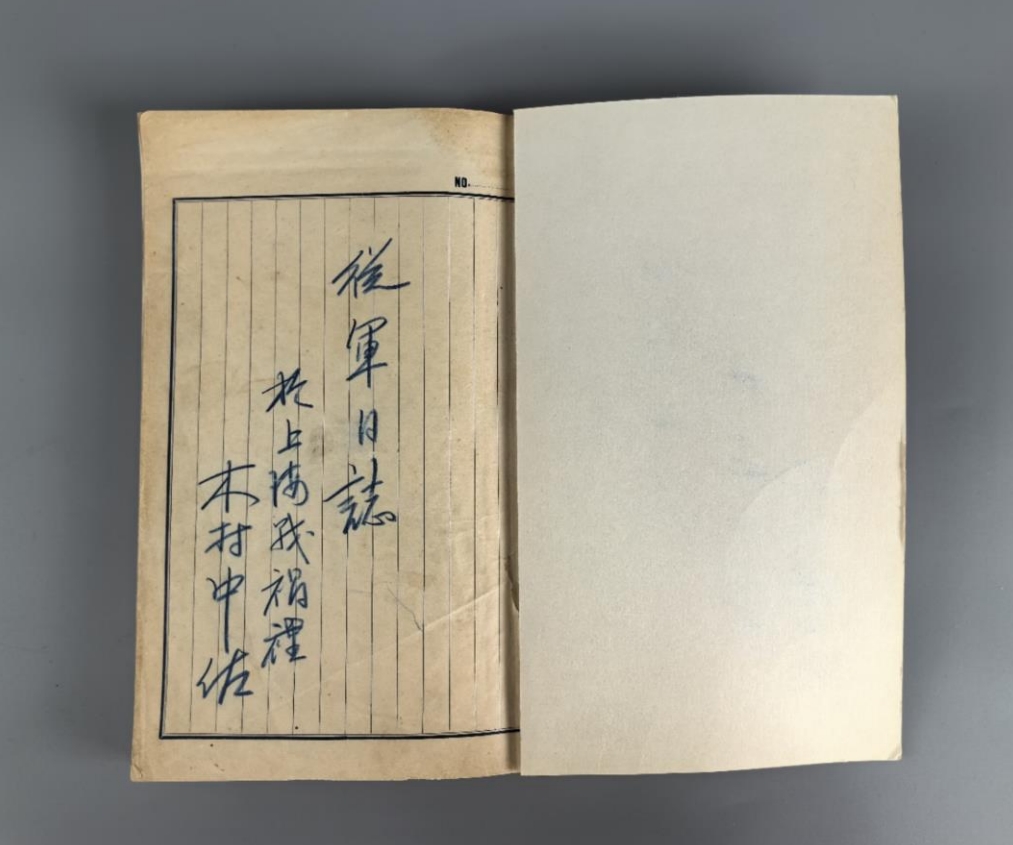 NO.
従軍日誌
於上海我禍裡
木村中佐